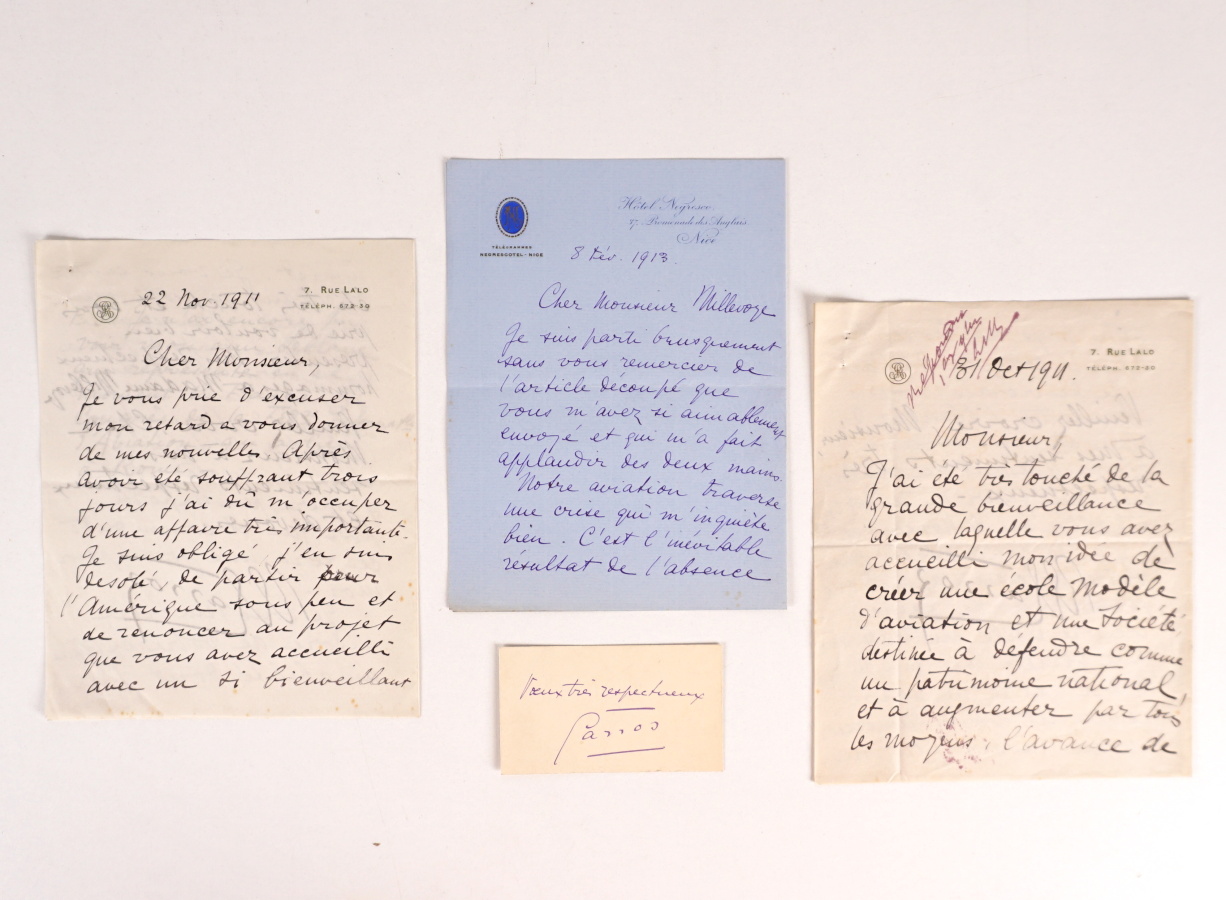 22 Nov. 1911
7. RUE LALO
TÉLÉPH. 672-20
Cher Monsieur,
Je vous prie d'excuser
mon retard a vous donner
de mes nouvelles. Après
avoir été souffrant trois
jours j'ai dû m'occuper
d'une affaire très importante.
Je suis obligé, j'en suis
désolé de partir pour
l'Amérique sous peu et
de renoncer au projet
que vous avez accueilli
avec un si bienveillant
TÉLÉGRAMMES
NEGRESCOTEL-NICE
Hôtel Negresco
37, Promenade des Anglais
Nice
8 Fév. 1913.
Cher Monsieur Millevoye
Je suis parti brusquement
sans vous remercier de
l'article découpé que
vous m'avez si aimablement
envoyé et qui m'a fait
applaudir des deux mains.
Notre aviation traverse
une crise qui m'inquiète
bien. C'est l'inévitable
résultat de l'absence
Vœux très respectueux
Garros
7. RUE LALO
TÉLÉPH. 672-20
31 Oct 1911.
Monsieur,
J'ai été très touché de la
grande bienveillance
avec laquelle vous avez
accueilli mon idée de
créer une école modèle
d'aviation et une Société
destinée à défendre comme
un patrimoine national,
et à augmenter par tous
les moyens, l'avance de